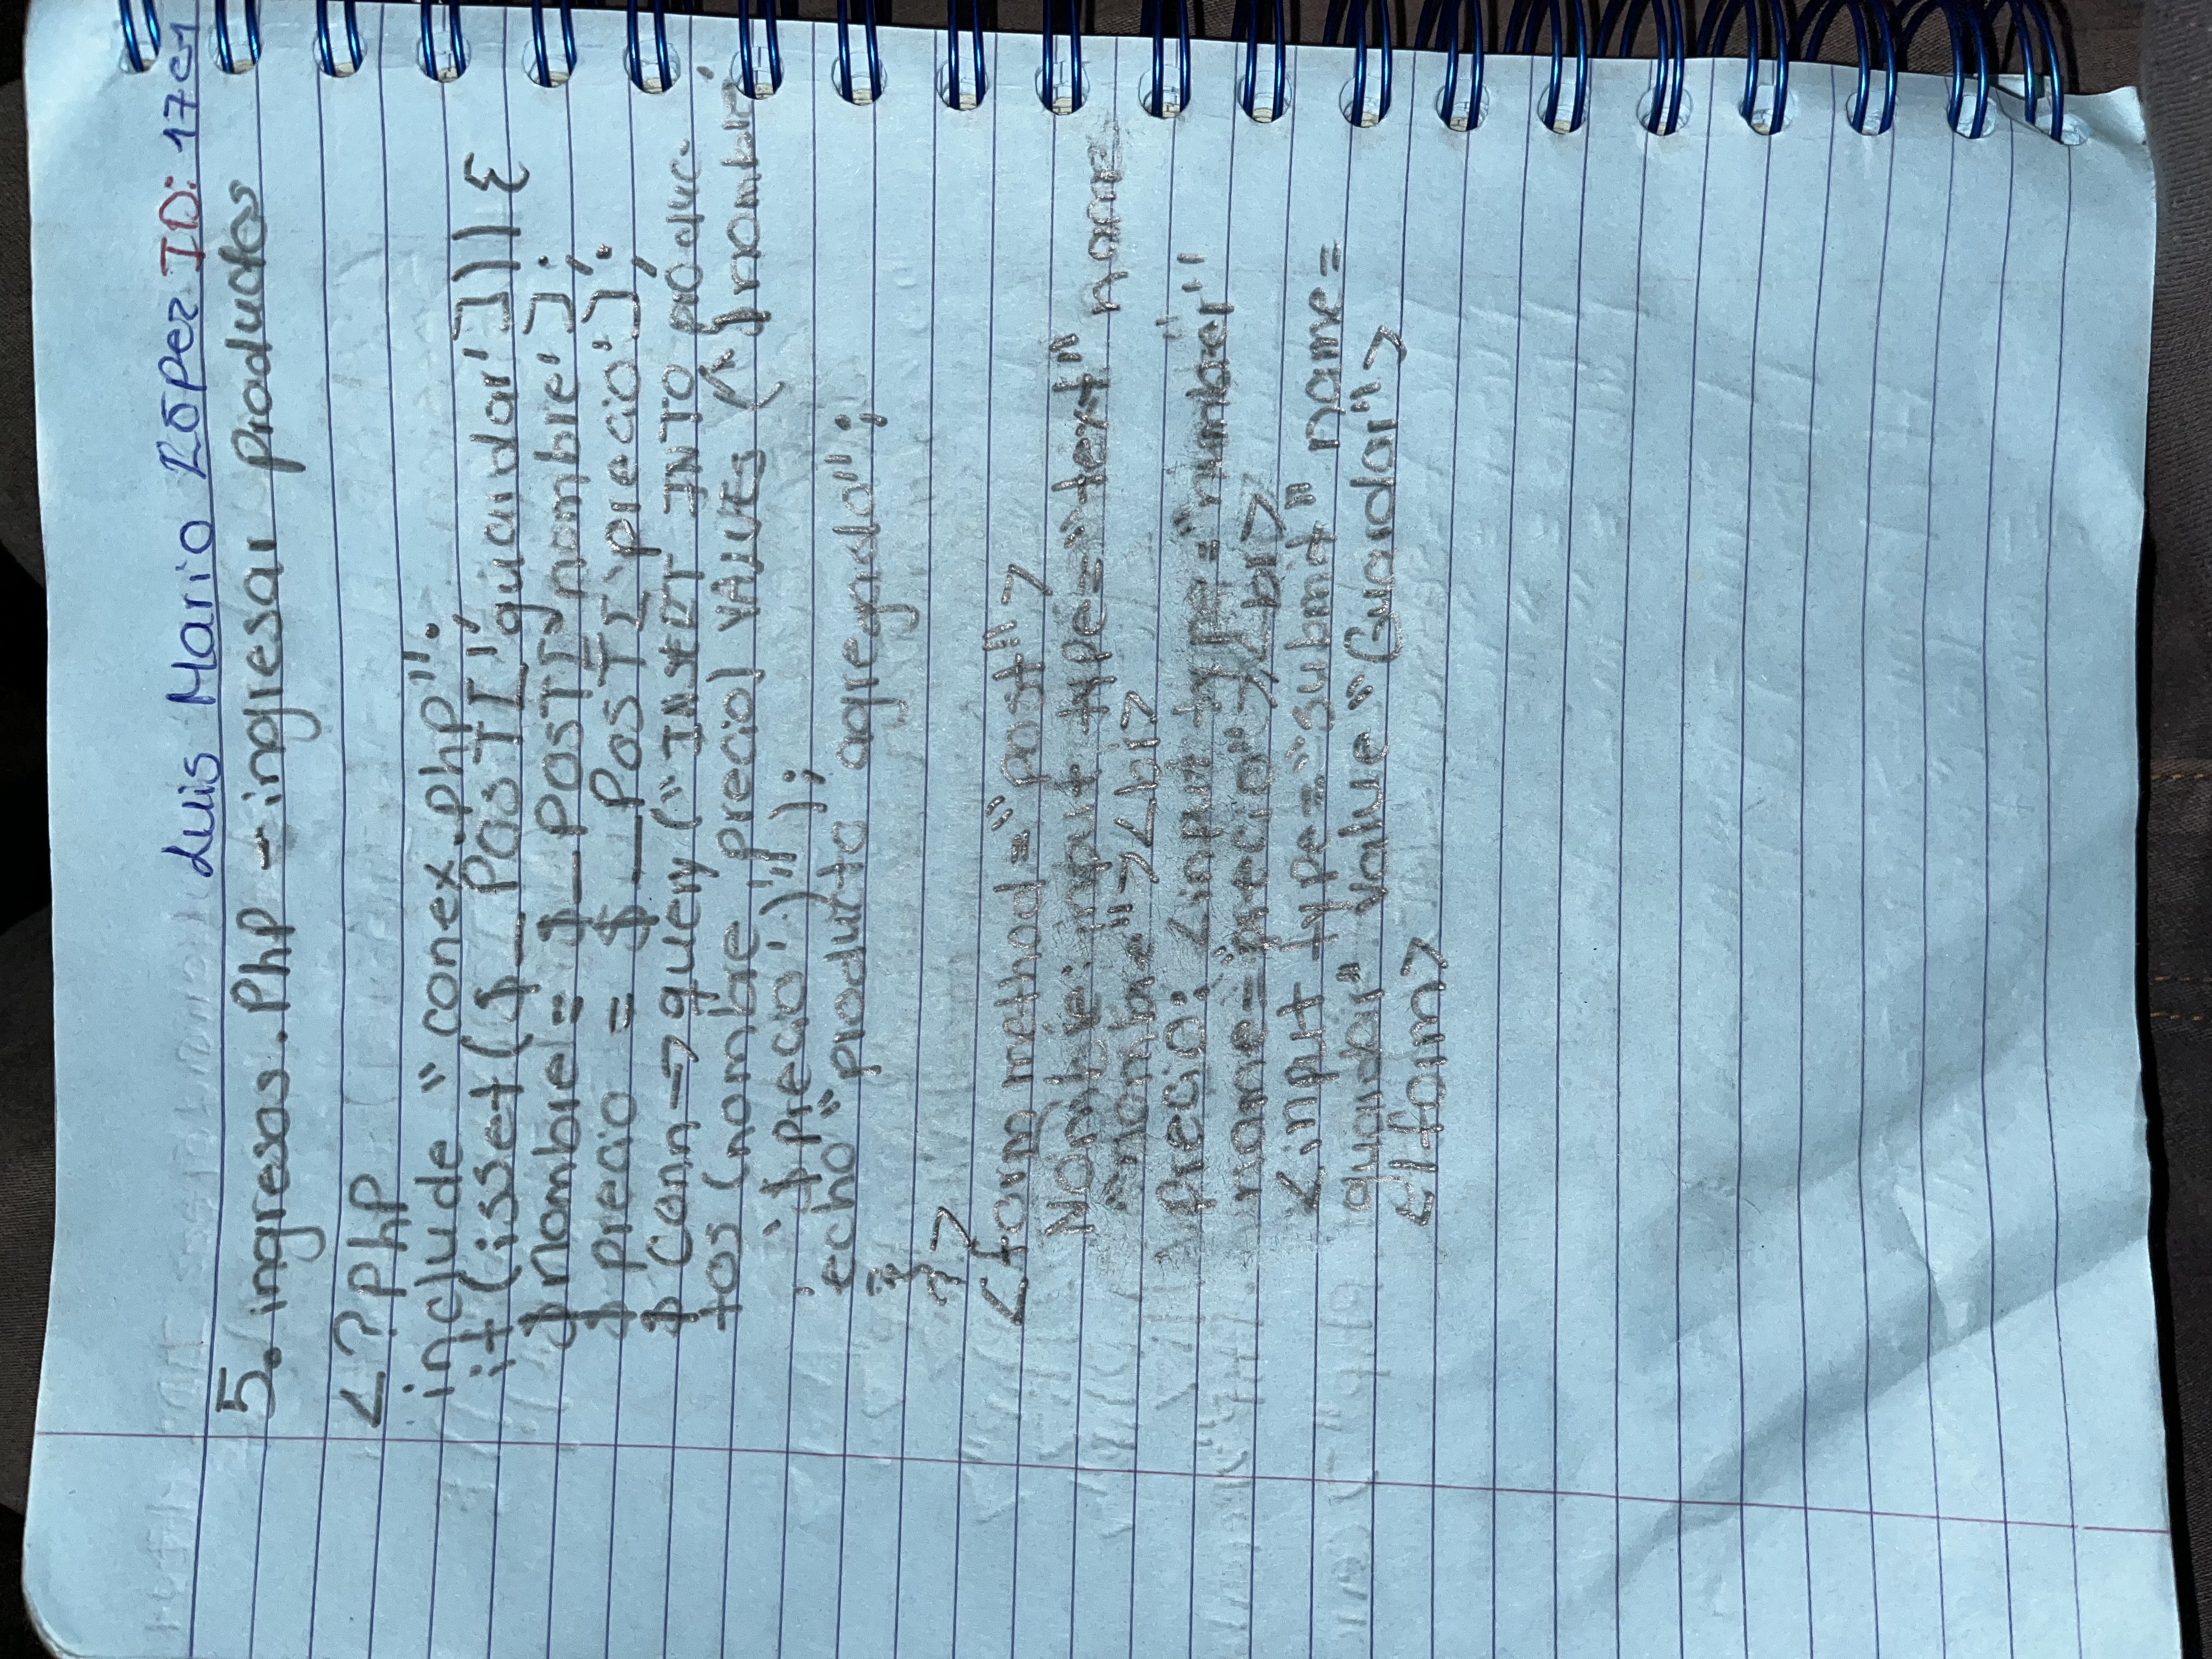 Luis Mario López ID: 17251
5. ingresos.Php - ingresar productos
<?php
include "conex.php";
if (isset($_POST['guardar'])) {
$nombre = $_POST['nombre'];
$precio = $_POST['precio'];
$conn->query("INSERT INTO produc-
tos (nombre, precio) VALUES ('$nombre',
'$precio')");
echo "producto agregado";
}
?>
<form method="post">
Nombre: input type="text" name
"nombre"><br>
Precio: <input type="number"
name="precio"><br>
<input type="submit" name=
guardar" value "Guardar">
</form>